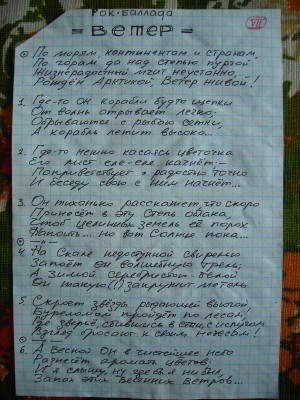 Рок-Баллада
- ВЕТЕР -
По морям, континентам и странам,
По горам да над степью пургой
Жизнерадостный мчит неустанно,
Рождён Арктикой, Ветер живой!
1. Где-то Он корабли будто щепки
От волны отрывает легко.
Обрываются с рыбою сетки,
А корабль летит высоко...
2. Где-то нежно касаясь цветочка
Его лист еле-еле качнёт -
Поприветствует с радостью точно
И беседу свою с ним начнёт...
3. Он тихонько расскажет, что скоро
Принесёт в эту Степь облака,
земель её
но вот Солнце пока...
4. На Скале недоступной свирелью
Запоёт Он волшебную трель;
А зимой серебристо-белой
Он такую(!!) закружит метель
5. Скроет звёзды рыдающей вьюгой,
Буреломом пройдёт по лесам,
Где зверьё, сбившись в
Взгляд бросают к своим небесам!
6. А весной Он в чистейшее небо
Разнесёт ароматы цветов,
И я слышу, где б я ни был,
Запах этих Весенних Ветров...